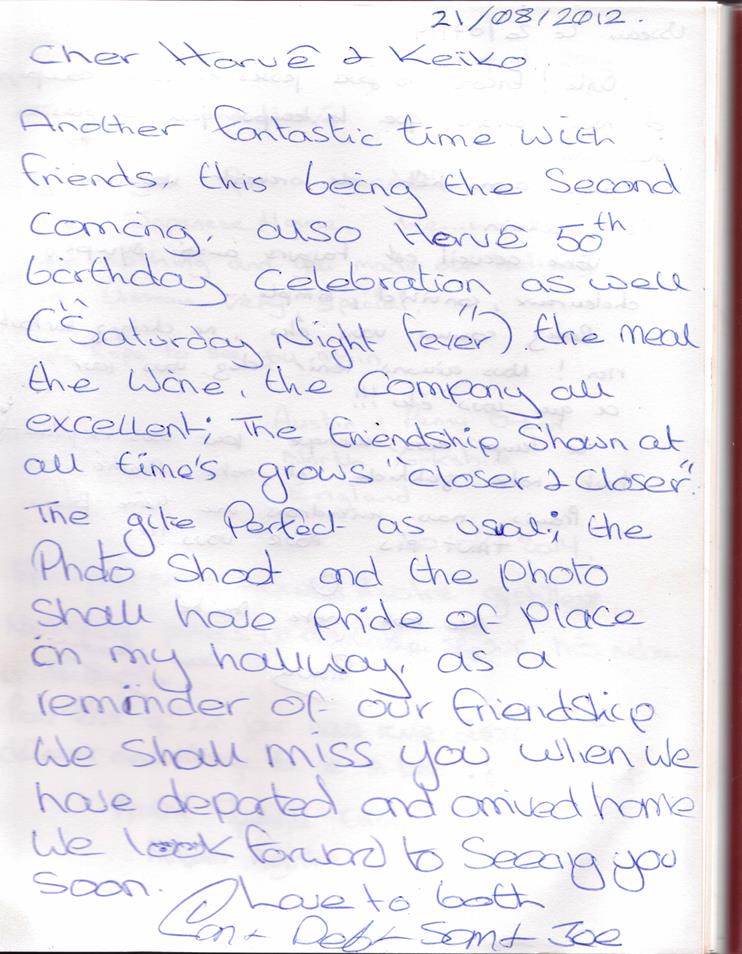 21/08/2012.
Cher Hervê & Keiko
Another fantastic time with
friends, this being the Second
Coming, also Hervê 50th
birthday Celebration as well
("Saturday Night Fever") the meal
the Wine, the Company all
excellent; The friendship Shown at
all time's grows "Closer & Closer".
The gite Perfect as usual; the
Photo Shoot and the photo
Shall have Pride of Place
in my hallway, as a
reminder of our friendship
We Shall miss you when we
have departed and arrived home
We look forward to Seeing you
Soon. love to both
Con + Deb + Sam + Joe